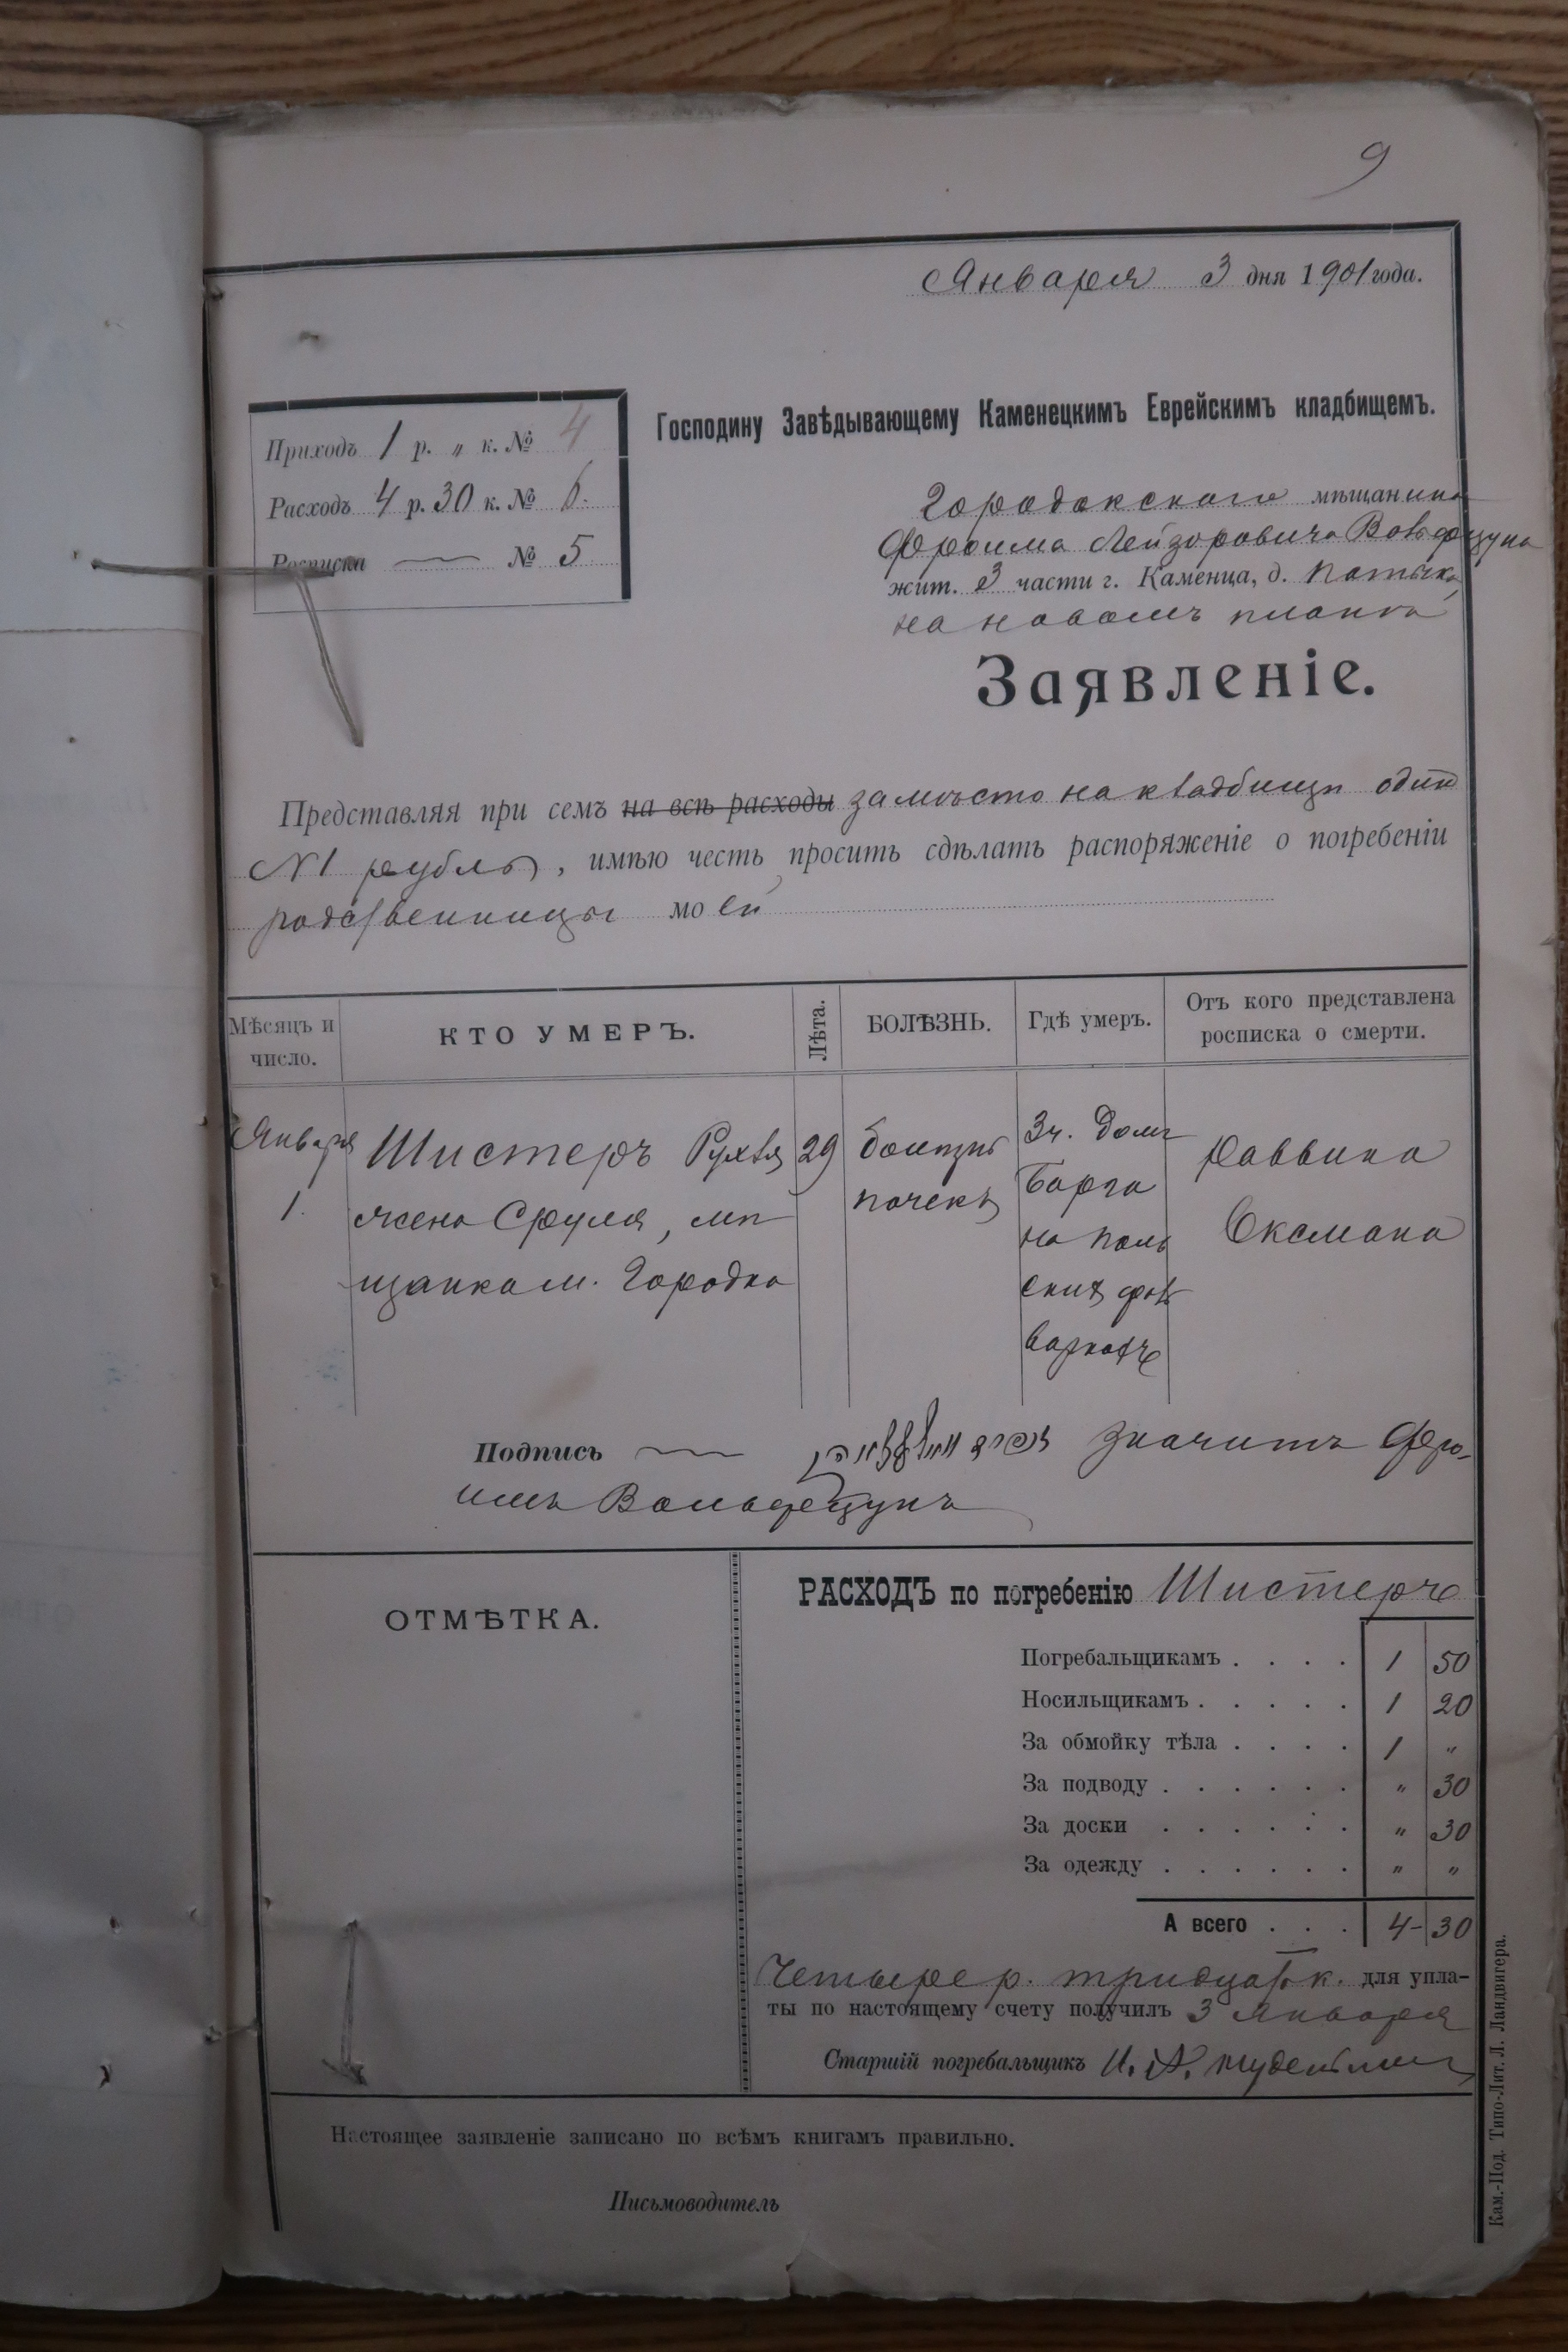 9
Января 3 дня 1901 года.
Приходъ 1 р. „ к. № 4
Расходъ 4 р. 30 к. № 6.
Росписка № 5
Господину Завѣдывающему Каменецкимъ Еврейскимъ кладбищемъ.
Городокскаго мѣщанина
Фроима Лейзоровича Вольфцуна
жит. 3 части г. Каменца, д.
на новомъ планѣ
Заявленіе.
Представляя при семъ на всѣ расходы за мѣсто на кладбищѣ одинъ
№1 рубль, имѣю честь просить сдѣлать распоряженіе о погребеніи
родственницы моей
Мѣсяцъ и число.
КТО УМЕРЪ.
Лѣта.
БОЛѢЗНЬ.
Гдѣ умеръ.
Отъ кого представлена росписка о смерти.
Января 1.
Шистеръ Рухля
жена Сруля, мѣ
щанка м. Городка
29
болѣзнь
почекъ
3ч. домъ
Барга
на поль
скихъ фоль
варкахъ
Раввина
Оксмана
Подпись значитъ Фро-
имъ Вольфцунъ
ОТМѢТКА.
РАСХОДЪ по погребенію Шистеръ
Погребальщикамъ . . . . 1 50
Носильщикамъ . . . . . 1 20
За обмойку тѣла . . . . 1 „
За подводу . . . . . . „ 30
За доски . . . . . . „ 30
За одежду . . . . . . „ „
А всего . . . 4- 30
Четыре р. тридцать к. для упла-
ты по настоящему счету получилъ 3 Января
Старшій погребальщикъ
Настоящее заявленіе записано по всѣмъ книгамъ правильно.
Письмоводитель
Кам.-Под. Типо-Лит. Л. Ландвигера.